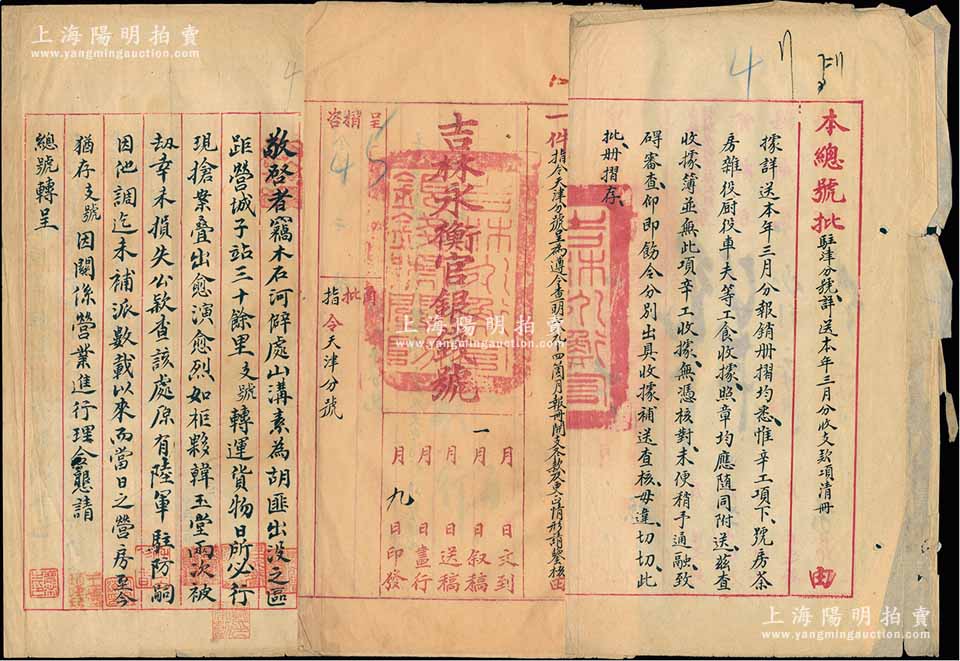 上海陽明拍賣
www.yangmingauction.com
本總號批
駐津分號詳送本年三月分收支款項清冊
由
據詳送本年三月分報銷册摺均悉惟辛工項下號房茶
房雜役厨役車夫等工食收據照章均應隨同附送茲查
收據簿並無此項辛工收據無憑核對未便稍予通融致
碍審查仰即飭令分別出具收據補送查核毋違切切此
批册摺存
4
一件
指令天津分號呈為遵令查明
四箇月報冊開支各款
情形請鑒核由
吉林永衡官銀錢號
月 日文到
一月 日叙稿
月 日送稿
月 日畫行
月九日印發
呈
咨
批
指令天津分號
45
敬啓者竊木石河僻處山溝素為胡匪出没之區
距營城子站三十餘里支號轉運貨物日所必行
現搶案叠出愈演愈烈如柜夥韓玉堂兩次被
刼幸未損失公款查該處原有陸軍駐防嗣
因他調迄未補派數載以來而當日之營房至今
猶存支號因關係營業進行理合懇請
總號轉呈
4
上海陽明拍賣
www.yangmingauction.com
上海陽明拍賣
www.yangmingauction.com
上海陽明拍賣
www.yangmingauction.com